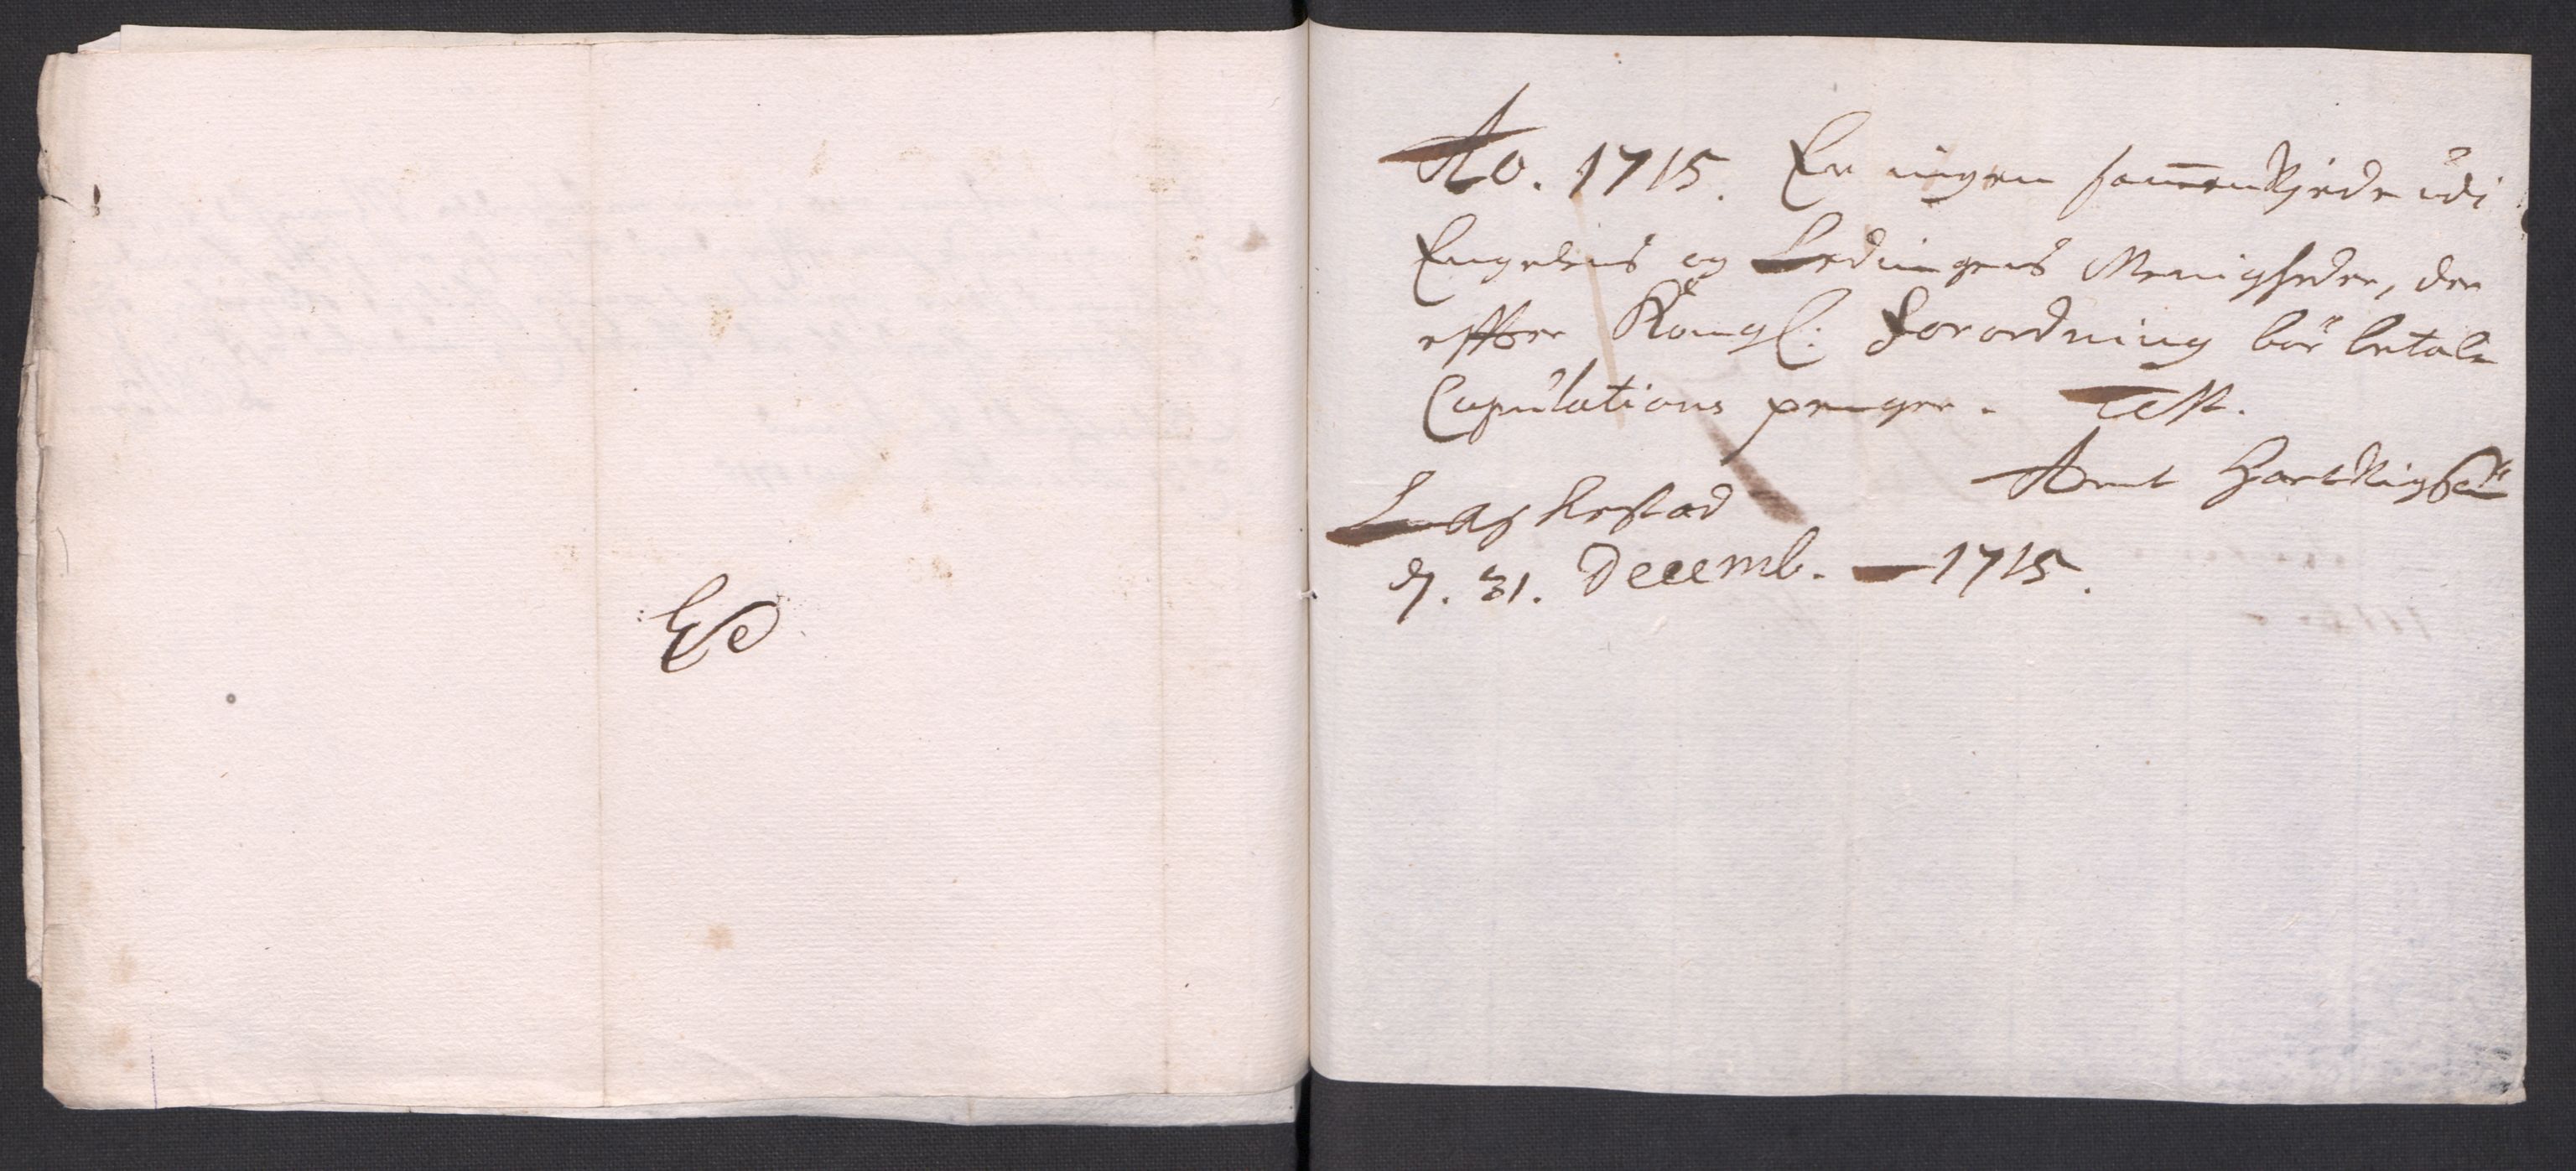 Ao. 1715. Er ingen sammenviede udi
Engelens og Lediingens Menigheder, der
effter Kongl: Forordning bör betale
Copulations penger. Test.
Arnt Hartvigsen
Laskestad
d. 31. Decemb. 1715.